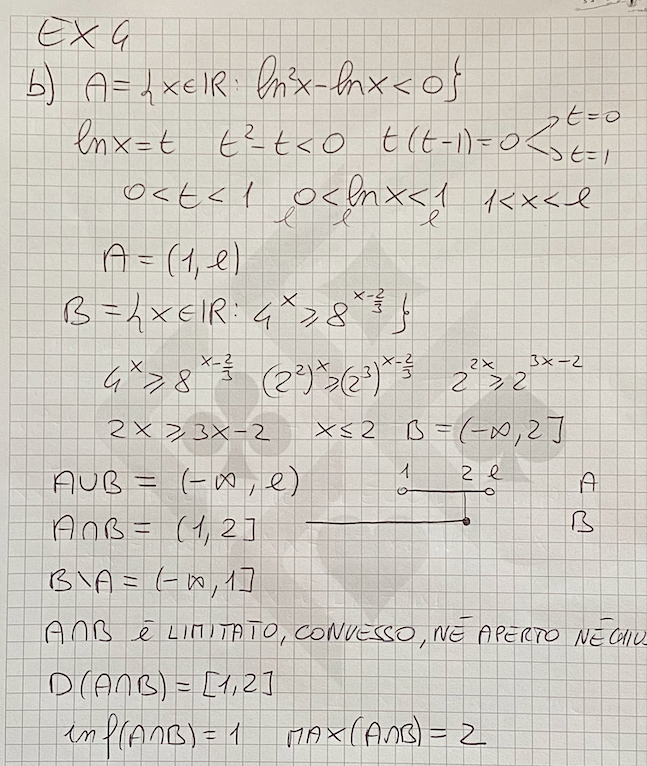 EX 4
b) A = { x ∈ IR : ln²x - lnx < 0 }
lnx = t t² - t < 0 t(t-1) = 0 t=0 t=1
0 < t < 1 e^0 < e^lnx < e^1 1 < x < e
A = (1, e)
B = { x ∈ IR : 4^x ⩾ 8^(x-2/3) }
4^x ⩾ 8^(x-2/3) (2²)^x ⩾ (2³)^(x-2/3) 2^2x ⩾ 2^(3x-2)
2x ⩾ 3x-2 x ≤ 2 B = (-∞, 2]
A∪B = (-∞, e) 1 2 e A
A∩B = (1, 2] B
B\A = (-∞, 1]
A∩B è LIMITATO, CONVESSO, NÉ APERTO NÉ CHIU
D(A∩B) = [1,2]
inf(A∩B) = 1 MAX(A∩B) = 2